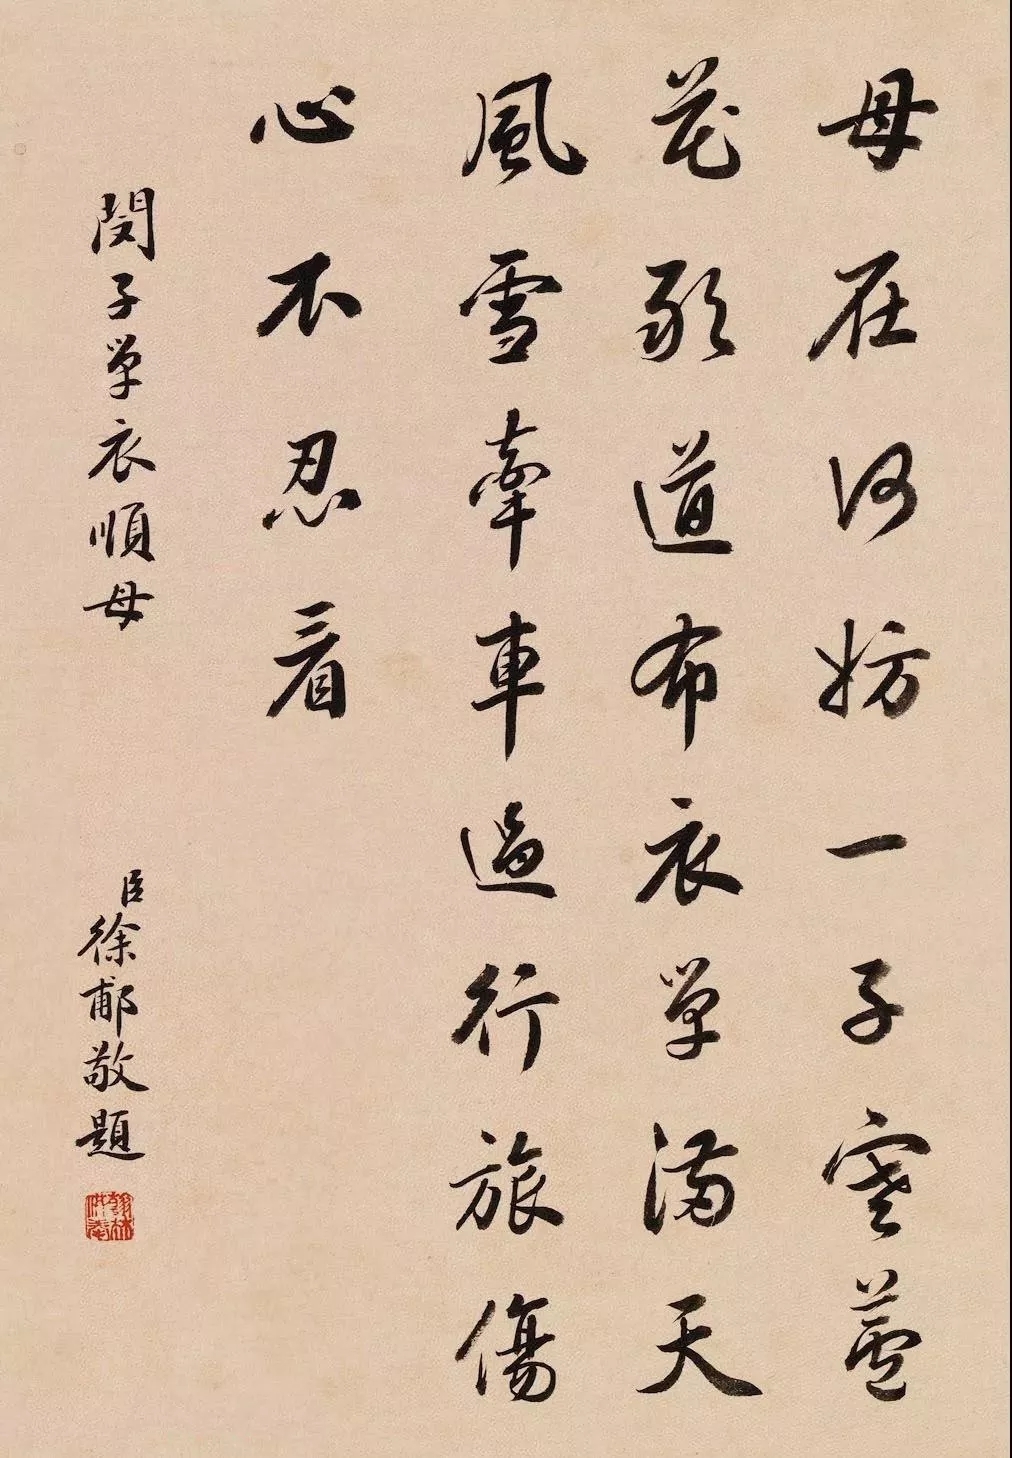 母在何妨一子寒蘆
花敢道布衣單滿天
風雪牽車過行旅傷
心不忍看
閔子單衣順母
臣徐郙敬題
翰林供奉